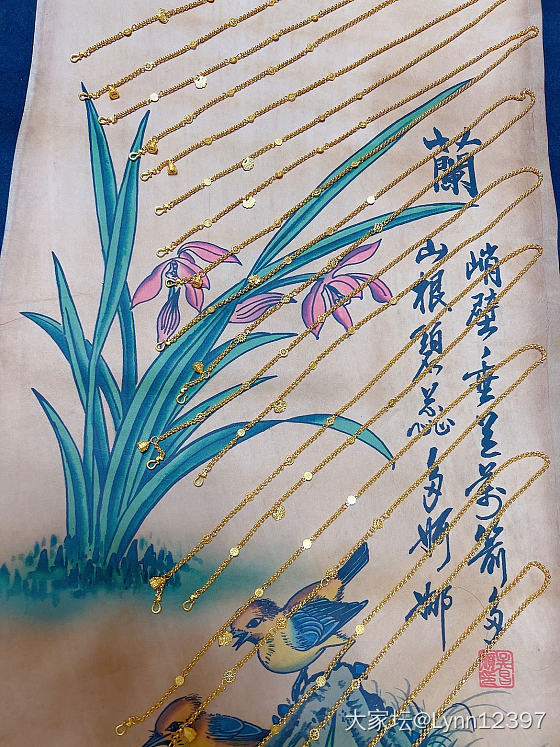 蘭
峭壁垂蘭萬箭多
山根碧蕊婀娜
大家坛@Lynn12397